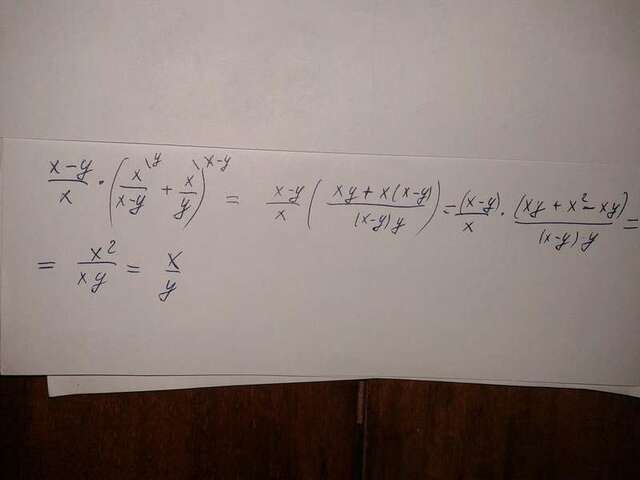 x-y/x · (x\y/x-y + x\x-y/y) = x-y/x (xy+x(x-y)/(x-y)y) = (x-y)/x · (xy+x²-xy)/(x-y)·y =
= x²/xy = x/y